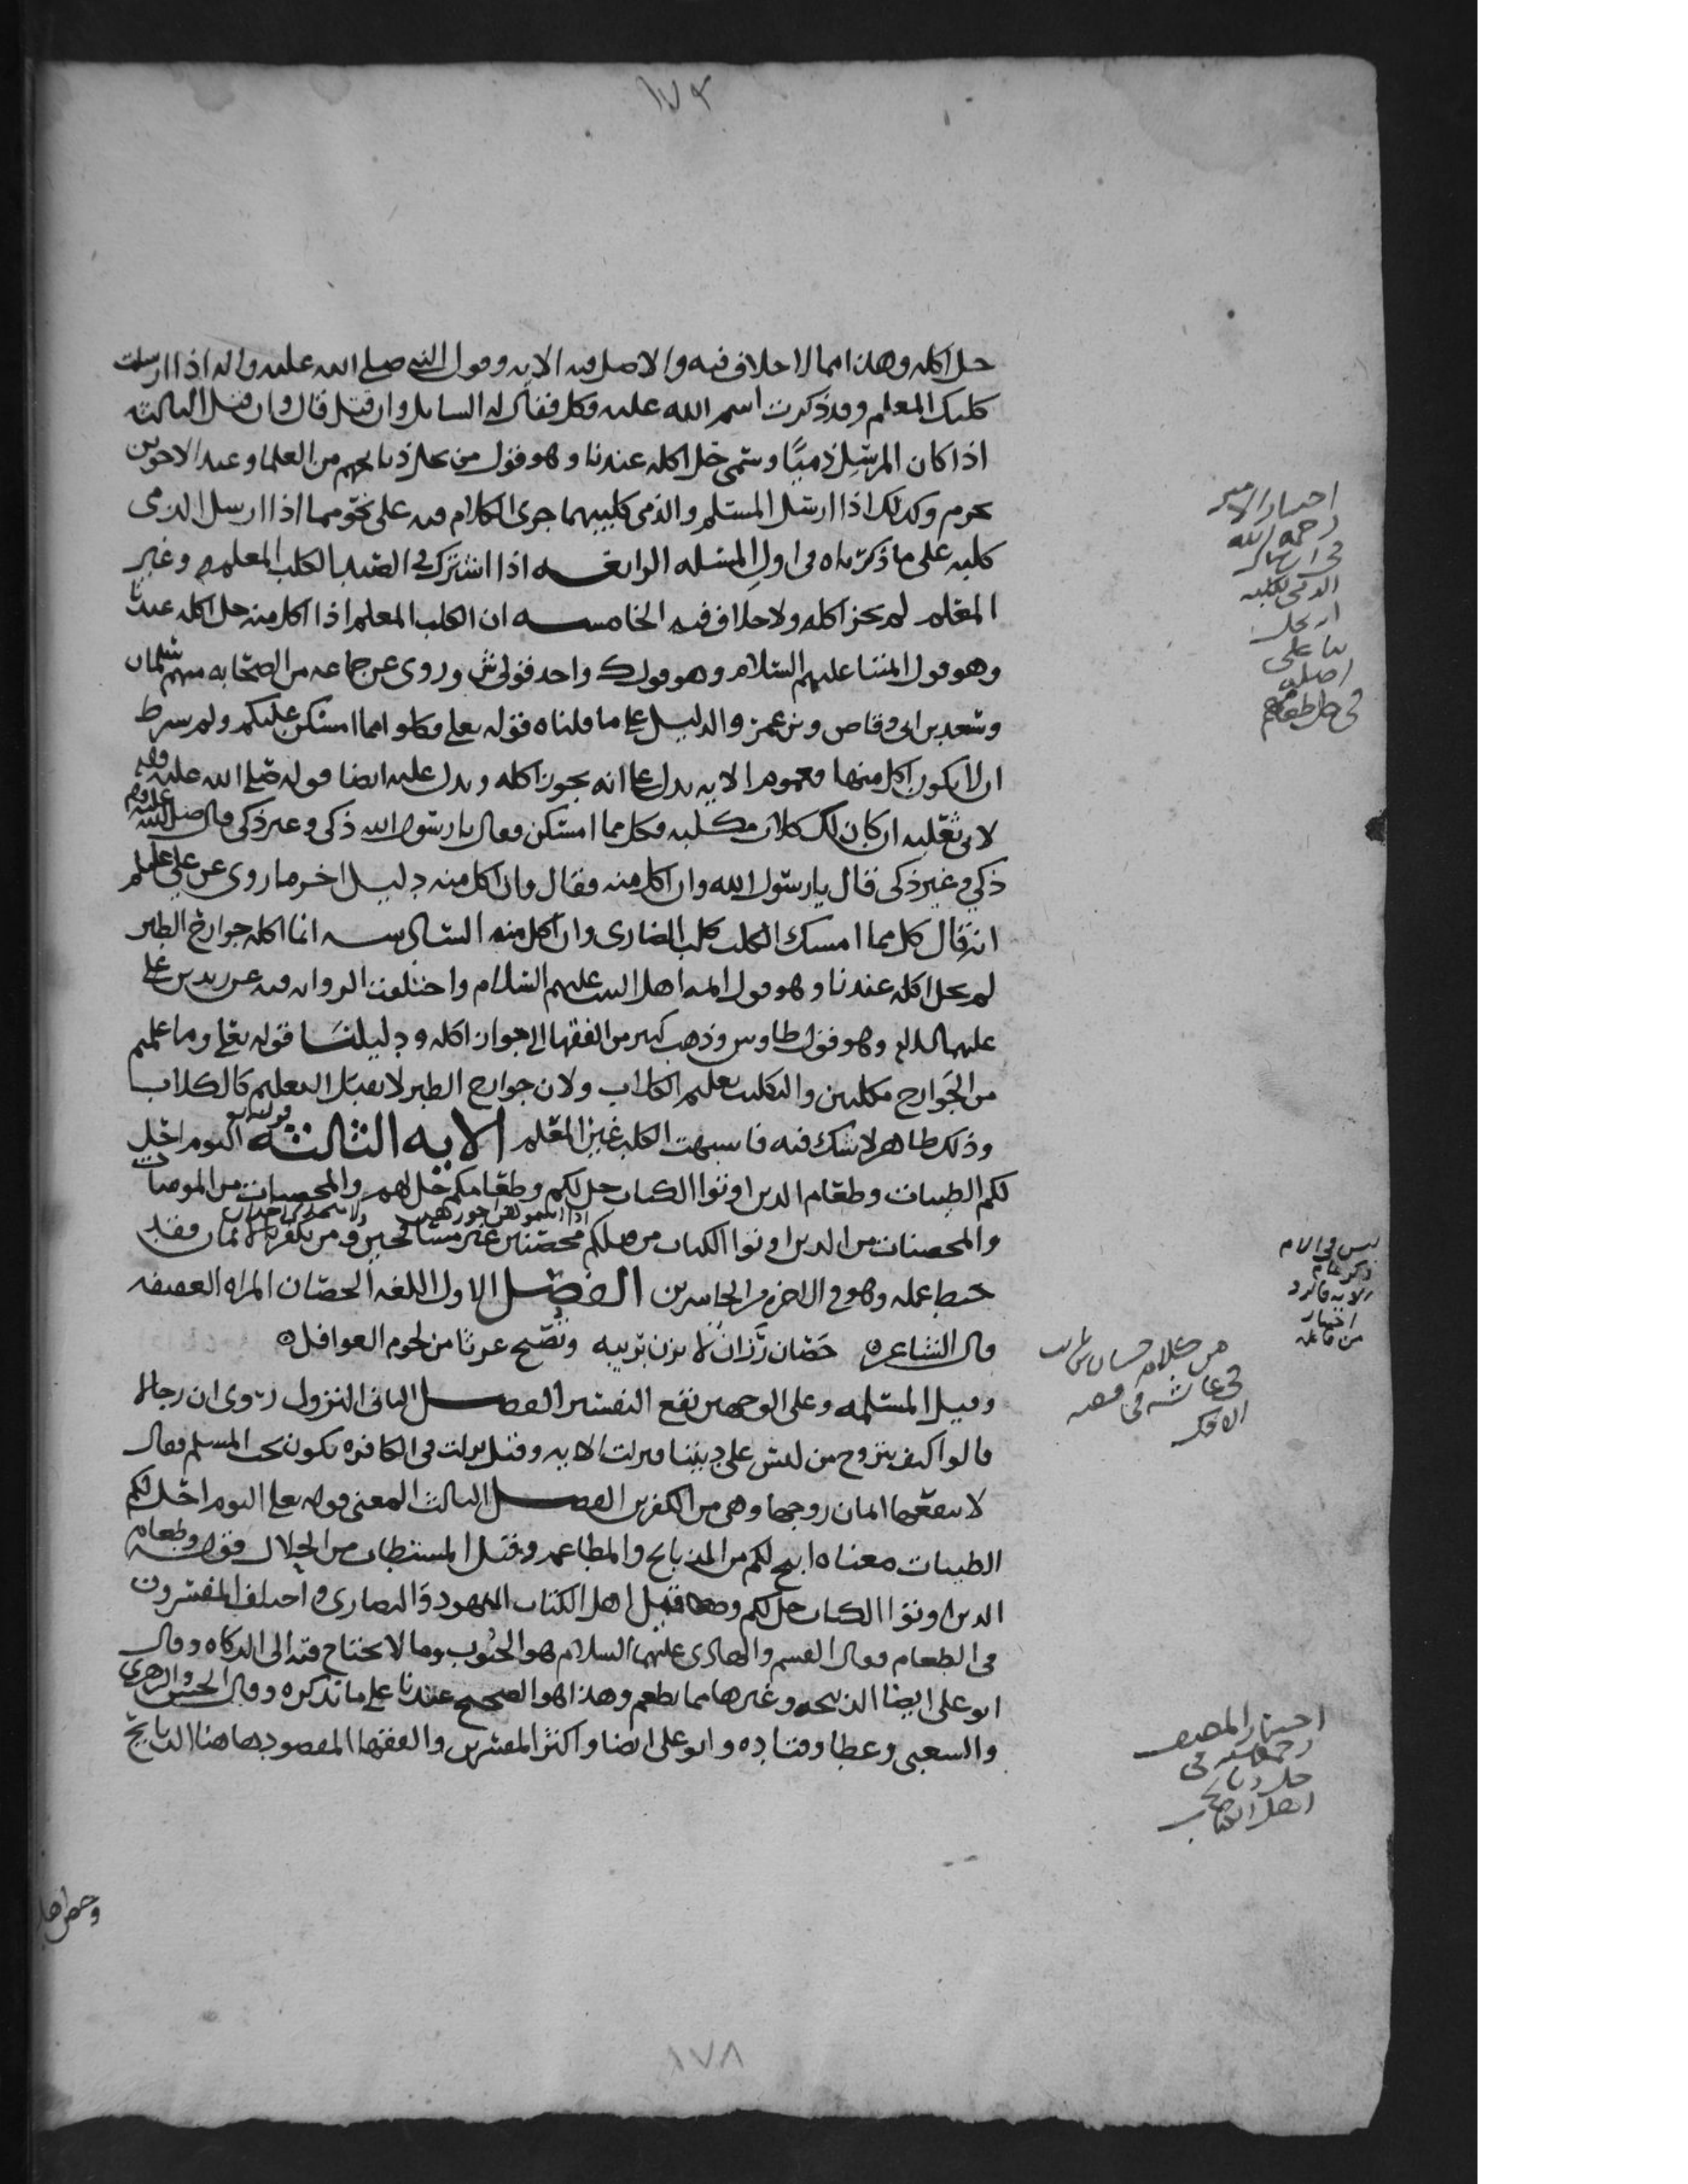 ١٧٣
حل اكله وهذا مما لا خلاف فيه والاصل فيه الايه وقول النبي صلى الله عليه واله اذا ارسلت
كلبك المعلم وقد ذكرت اسم الله عليه فكل فقال له السايل وان قتل قال وان قتل الثالثه
اذا كان المرسل ذميًا وسمى حل اكله عندنا وهو قول من يحل ذبايحهم من العلما وعند الاخرين
يحرم وكذلك اذا ارسل المسلم والذمي كلبيهما جرى الكلام فيه على نحو مما اذا ارسل الذمي
كلبه على ما ذكرناه في اول المسله الرابعــه اذا اشترك في الصيد الكلب المعلم وغير
المعلم لم يجز اكله ولا خلاف فيه الخامســه ان الكلب المعلم اذا اكل منه حل اكله عندنا
وهو قول ائمتنا عليهم السلام وهو قول ك واحد قولي ش وروى عن جماعه من الصحابه منهم سلمان
وسعد بن ابي وقاص وبن عمر والدليل على ما قلناه قوله تعلى فكلوا مما امسكن عليكم ولم يشرط
ان لا يكون اكل منها فعموم الايه يدل على انه يجوز اكله ويدل عليه ايضا قوله صلى الله عليه
لابي ثعلبه ان كان لك كلاب مكلبه فكل مما امسكن فقال يا رسول الله ذكي وغير ذكي قال صلى الله عليه
ذكي وغير ذكي قال يا رسول الله وان اكل منه فقال وان اكل منه دليل اخر ما روى عن علي علىلم
انه قال كل مما امسك الكلب كلب الضاري وان اكل منه السادسه انما اكله جوارح الطير
لم يحل اكله عندنا وهو قول ايمه اهل البيت عليهم السلام واختلفت الروايه فيه عن زيد بن علي
عليهما السلم وهو قول طاوس وذهب كثير من الفقها الى جواز اكله ودليلنا قوله تعلى وما علمتم
من الجوارح مكلبين والتكليب تعليم الكلاب ولان جوارح الطير لا تقبل التعليم كالكلاب
وذلك ظاهر لا شك فيه فاشبهت الكلب غير المعلم الايه الثالثه قوله تع اليوم احل
لكم الطيبات وطعام الذين اوتوا الكتاب حل لكم وطعامكم حل لهم والمحصنات من المومنات
والمحصنات من الذين اوتوا الكتاب من قبلكم اذا اتيتموهن اجورهن محصنين غير مسافحين ولا متخذي اخدان ومن يكفر بالايمان فقد
حبط عمله وهو في الاخره من الخاسرين الفصل الاول اللغه الحصان المراه العفيفه
قال الشاعر ه حَصَان رَزَانٌ لا تزن بريبه وتصبح غرثا من لحوم الغوافل ه
وقيل المسلمه وعلى الوجهين تقع التفسير الفصــل الثاني النزول روى ان رجالا
قالوا كيف نتزوج من ليس على ديننا فنزلت الايه وقيل نزلت في الكافره تكون تحت المسلم فقال
لا ينفعها ايمان زوجها وهي من الكفرين الفصــل الثالث المعنى قوله تعلى اليوم احل لكم
الطيبات معناه ابيح لكم من الذبايح والمطاعم وقيل المستطاب من الحلال قوله وطعام
الذين اوتوا الكتاب حل لكم قيل اهل الكتاب اليهود والنصارى واختلف المفسرون
في الطعام فقال القسم والهادى عليهما السلام هو الحبوب وما لا يحتاج فيه الى الذكاه وقال
ابو على ايضا الذبيحه وغيرها مما يطعم وهذا هو الصحيح عندنا على ما نذكره وقال الحسن والزهرى
والشعبي وعطا وقتاده وابو على ايضا واكثر المفسرين والفقها المقصود ها هنا الذبايح
اختيار الامير
رحمه الله
في ارسال
الذمي لكلبه
ان يحل
بنا على
اصله
في حل طعامهم
ليس في الام
ذكر
من كلام حسان بن ثابت
في عائشه في قصه
الافك
اختيار المصنف
رحمه الله في
حل ذبايح
اهل الكتاب
وخص اهل
١٧٨